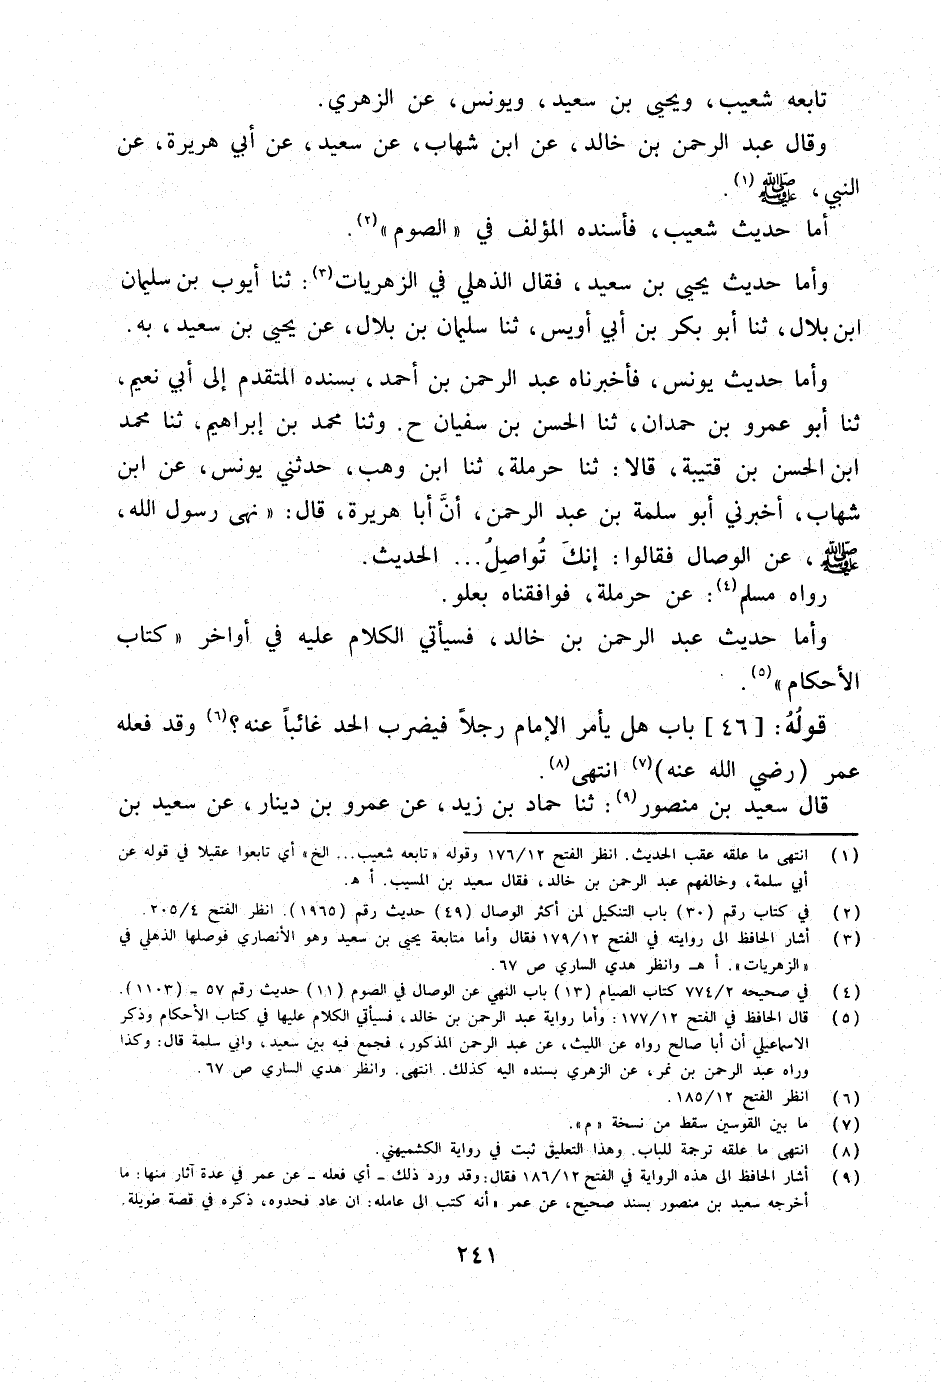 تابعه شعيب، ويحيى بن سعيد، ويونس، عن الزهري.
وقال عبد الرحمن بن خالد، عن ابن شهاب، عن سعيد، عن أبي هريرة، عن
النبي، ﷺ (١).
أما حديث شعيب، فأسنده المؤلف في «الصوم»(٢).
وأما حديث يحيى بن سعيد، فقال الذهلي في الزهريات(٣): ثنا أيوب بن سليمان
ابن بلال، ثنا أبو بكر بن أبي أويس، ثنا سليمان بن بلال، عن يحيى بن سعيد، به.
وأما حديث يونس، فأخبرناه عبد الرحمن بن أحمد، بسنده المتقدم إلى أبي نعيم،
ثنا أبو عمرو بن حمدان، ثنا الحسن بن سفيان ح. وثنا محمد بن إبراهيم، ثنا محمد
ابن الحسن بن قتيبة، قالا: ثنا حرملة، ثنا ابن وهب، حدثني يونس، عن ابن
شهاب، أخبرني أبو سلمة بن عبد الرحمن، أنَّ أبا هريرة، قال: «نهى رسول الله،
ﷺ، عن الوصال فقالوا: إنكَ تُواصِلُ... الحديث.
رواه مسلم(٤): عن حرملة، فوافقناه بعلو.
وأما حديث عبد الرحمن بن خالد، فسيأتي الكلام عليه في أواخر «كتاب
الأحكام»(٥).
قولُهُ: [٤٦] باب هل يأمر الإمام رجلاً فيضرب الحد غائباً عنه؟(٦) وقد فعله
عمر (رضي الله عنه)(٧) انتهى(٨).
قال سعيد بن منصور(٩): ثنا حماد بن زيد، عن عمرو بن دينار، عن سعيد بن
(١) انتهى ما علقه عقب الحديث. انظر الفتح ١٧٦/١٢ وقوله «تابعه شعيب... الخ» أي تابعوا عقيلا في قوله عن
أبي سلمة، وخالفهم عبد الرحمن بن خالد، فقال سعيد بن المسيب. أ هـ.
(٢) في كتاب رقم (٣٠) باب التنكيل لمن أكثر الوصال (٤٩) حديث رقم (١٩٦٥). انظر الفتح ٢٠٥/٤.
(٣) أشار الحافظ الى روايته في الفتح ١٧٩/١٢ فقال وأما متابعة يحيى بن سعيد وهو الأنصاري فوصلها الذهلي في
«الزهريات». أ هـ وانظر هدي الساري ص ٦٧.
(٤) في صحيحه ٧٧٤/٢ كتاب الصيام (١٣) باب النهي عن الوصال في الصوم (١١) حديث رقم ٥٧ - (١١٠٣).
(٥) قال الحافظ في الفتح ١٧٧/١٢: وأما رواية عبد الرحمن بن خالد، فسيأتي الكلام عليها في كتاب الأحكام وذكر
الاسماعيلي أن أبا صالح رواه عن الليث، عن عبد الرحمن المذكور، فجمع فيه بين سعيد، وابي سلمة قال: وكذا
وراه عبد الرحمن بن نمر، عن الزهري بسنده اليه كذلك. انتهى. وانظر هدي الساري ص ٦٧.
(٦) انظر الفتح ١٨٥/١٢.
(٧) ما بين القوسين سقط من نسخة «م».
(٨) انتهى ما علقه ترجمة للباب. وهذا التعليق ثبت في رواية الكشميهني.
(٩) أشار الحافظ الى هذه الرواية في الفتح ١٨٦/١٢ فقال: وقد ورد ذلك - أي فعله - عن عمر في عدة آثار منها: ما
أخرجه سعيد بن منصور بسند صحيح، عن عمر «أنه كتب الى عامله: ان عاد فحدوه، ذكره في قصة طويلة.
٢٤١